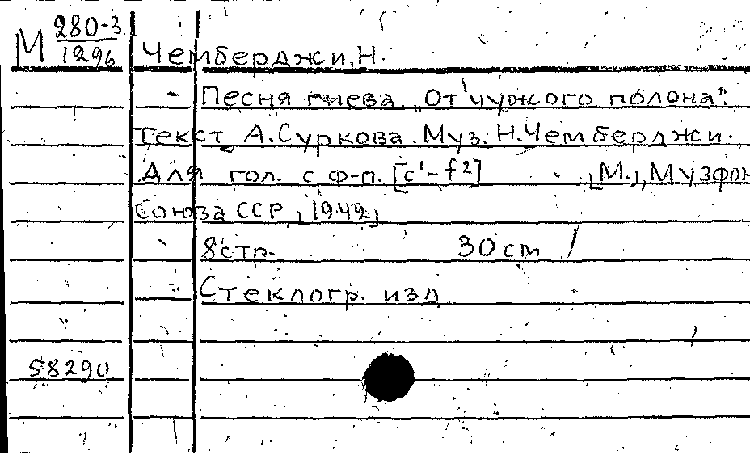 М 280-3/1296 Чемберджи, Н.
- Песня гнева "От чужого полона".
Текст А. Суркова. Муз. Н. Чемберджи.
Для гол. с ф-п. [c¹-f²] [М.], Музфон
Союза ССР, [1942]
8 стр. 30 cm /
Стеклогр. изд
58290